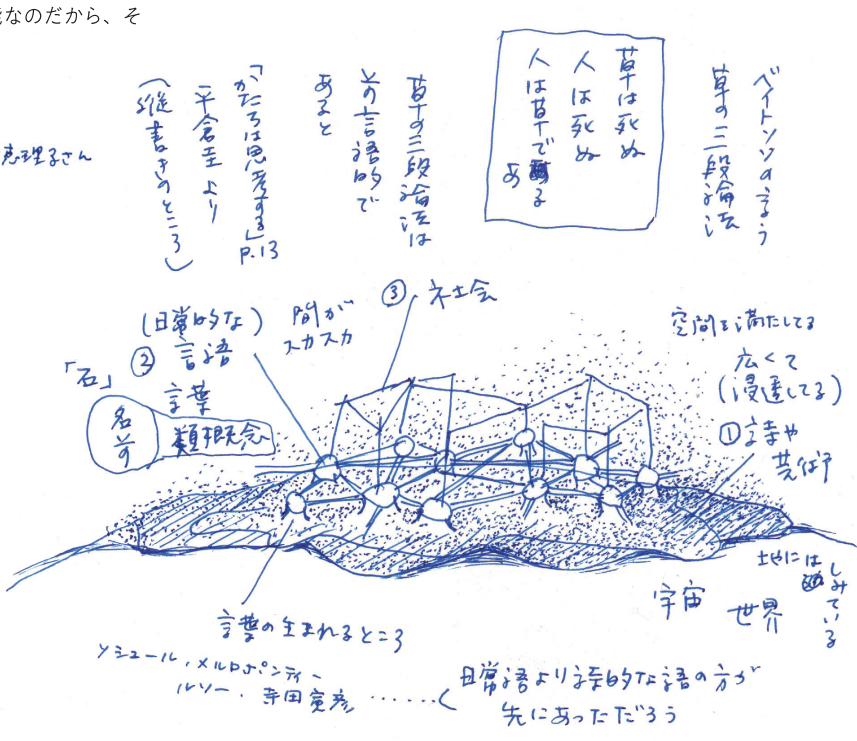 能なのだから、そ
恵理子さん
ベイトソンの言う
草の三段論法
草は死ぬ
人は死ぬ
人は草で
ある
草の三段論法は
その言語的で
あると
「かたちは思考する」p.13
平倉圭より
(縦書きのところ)
③ 社会
間が
スカスカ
(日常的な)
② 言語
「石」
言葉
名前
類概念
空間を満たしてる
広くて
(浸透してる)
① 詩や
芸術
地には
しみている
宇宙
世界
言葉の生まれるところ
ソシュール・メルロポンティー
ルソー・寺田寅彦……
日常語より詩的な語の方が
先にあっただろう